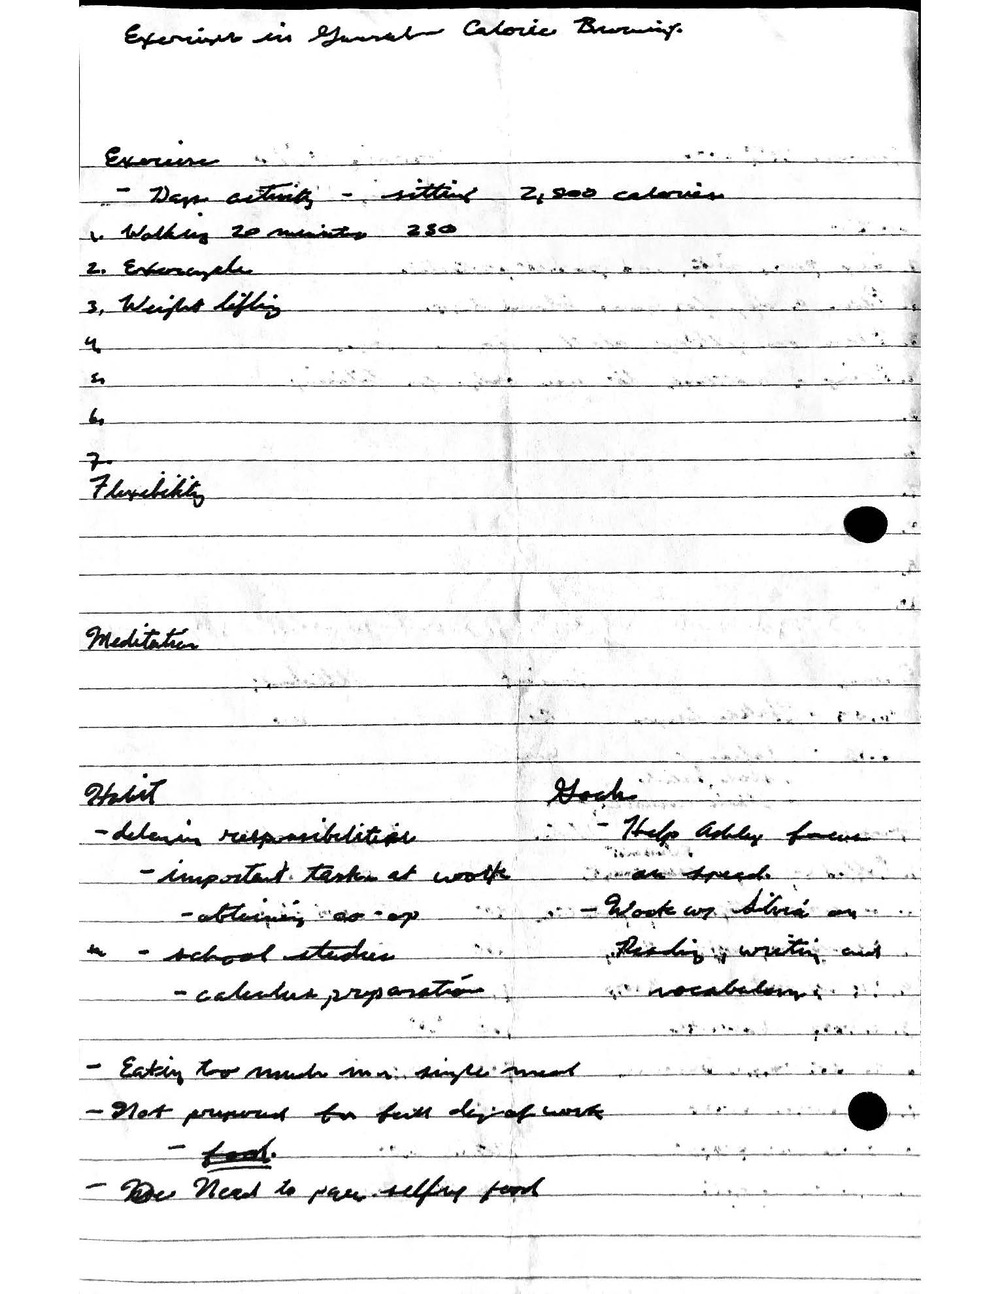 Exercises in General Calorie Burning.
Exercise
- Days activity - sitting 2,800 calories
1. Walking 20 minutes 230
2. Exercycle
3. Weight lifting
4.
5.
6.
7.
Flexibility
Meditation
Habit
- delaying responsibilities
- important tasks at work
- obtaining co-op
- school studies
- calculus preparation
Goals
- Help Ashley focus
on speed.
- Work w/ Silvia on
Reading, writing and
vocabulary
- Eating too much in a single meal
- Not prepared for full day of work
- food.
- Need to pace self food